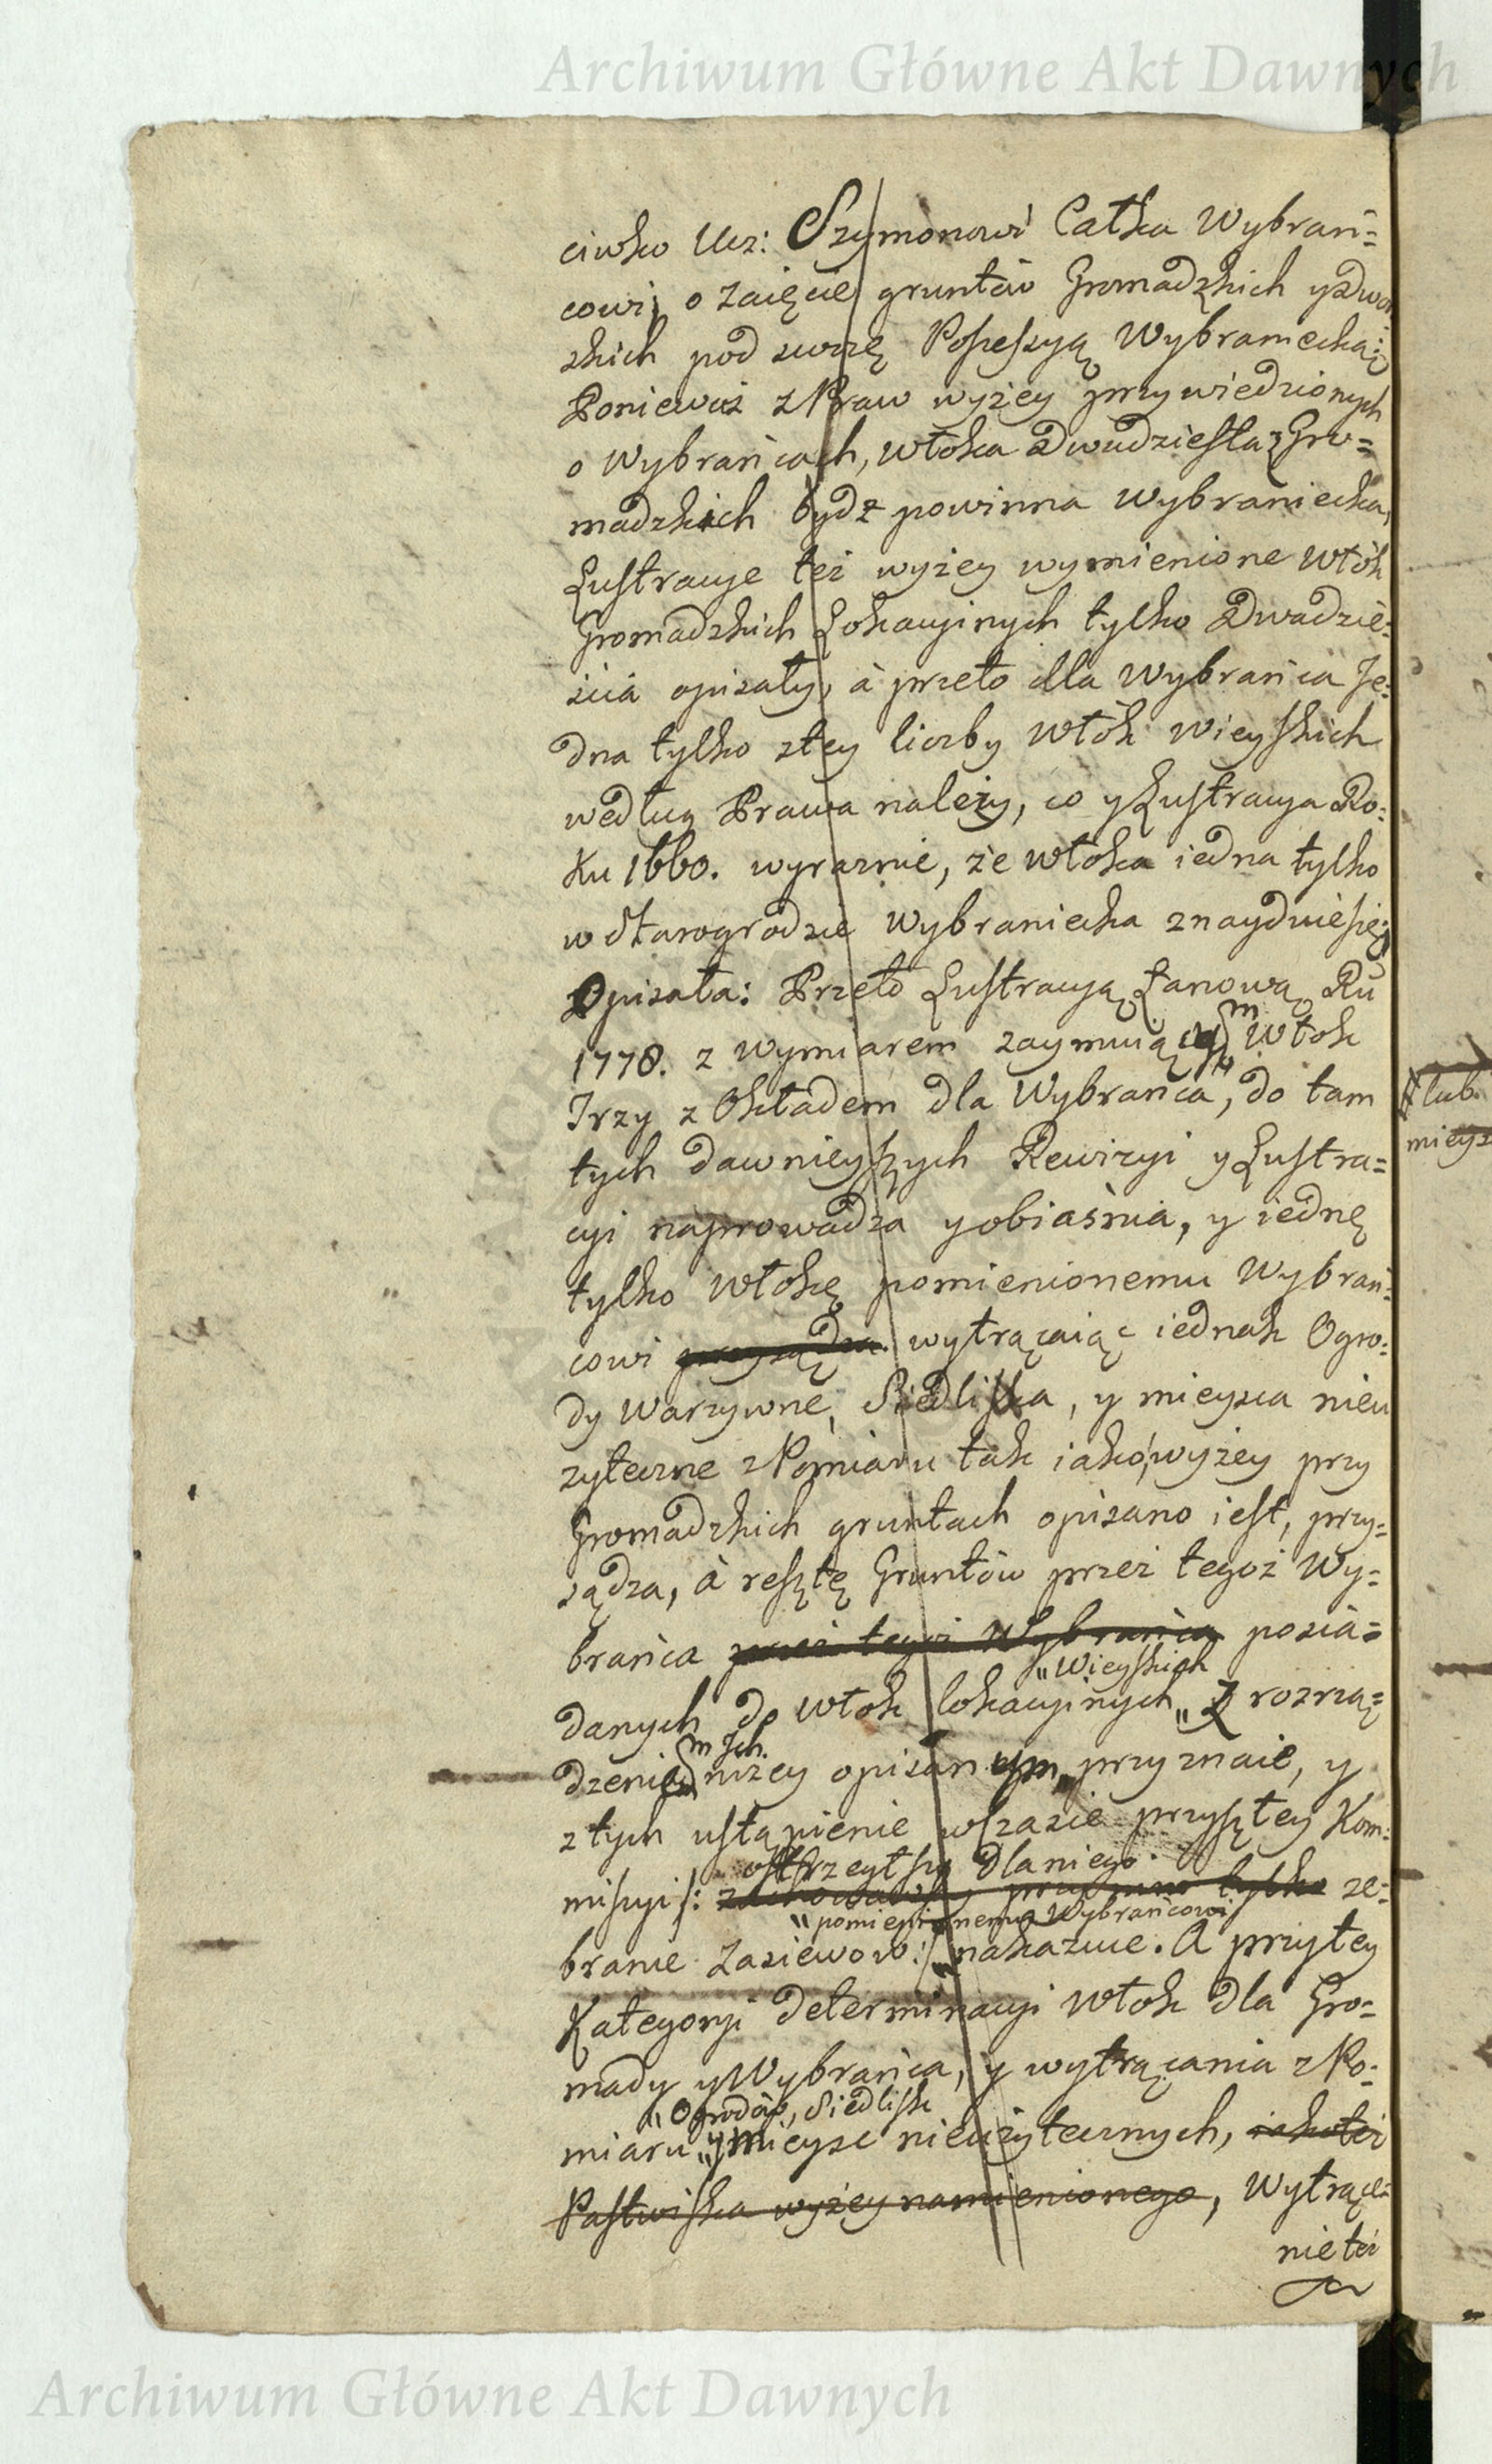 Archiwum Główne Akt Dawnych
ciwko Ucz: Szymonowi Całka Wybrań=
cowi, o zaięcie gruntów Gromadzkich y Dwor
skich pod swoię Possessyą Wybraniecką:
Ponieważ z Praw wyżey przywiedzionych
o Wybrańcach, włoka Dwudziesta z Gro=
madzkich bydź powinna Wybraniecka,
Lustracye też wyżey wymienione Włók
Gromadzkich Lokacyinych tylko Dwadzie=
ścia opisały, à przeto dla Wybrańca Je=
dna tylko z tey liczby Włók Wieyskich
według Prawa należy, co y Lustracya Ro=
ku 1660. wyraznie, że włoka iedna tylko
w Starogrodzie Wybraniecka znayduie się,
Opisała: Przeto Lustracyą Łanową Ru
1778. z wymiarem zaymuiącym Włok
Trzy z Okładem dla Wybrańca, do tam
tych dawnieyszych Rewizyi y Lustra=
cyi naprowadza y obiaśnia, y iednę
tylko Włokę pomienionemu Wybrań=
cowi przysądza wytrącaiąc iednak Ogro=
dy Warzywne, Siedliska, y mieysca nieu
zyteczne z Pomiaru tak iako wyżey przy
Gromadzkich gruntach opisano iest, przy=
sądza, à resztę Gruntów przez tegoż Wy=
brańca przez tegoż Wybrańca posia=
"Wieyskich
danych do Włok lokacyinych" z rozrzą=
m Ich
dzeniem niżey opisanym, przyznaie, y
z tych ustąpienie wczasie przyszłey Kom=
ostrzegłszy dla niego
missyi /: zachowawszy przyznane tylko ze=
"pomienionemu Wybrańcowi
branie Zasiewow :/ nakazuie. A przy tey
Kategoryi determinacyi Włok dla Gro=
mady y Wybrańca, y wytrącania z Po=
"Ogrodów, Siedlisk
miaru" y mieysc nieużytecznych, iako też
Pastwiska wyżey namienionego, Wytrące=
nie też
# lub
mieys
Archiwum Główne Akt Dawnych